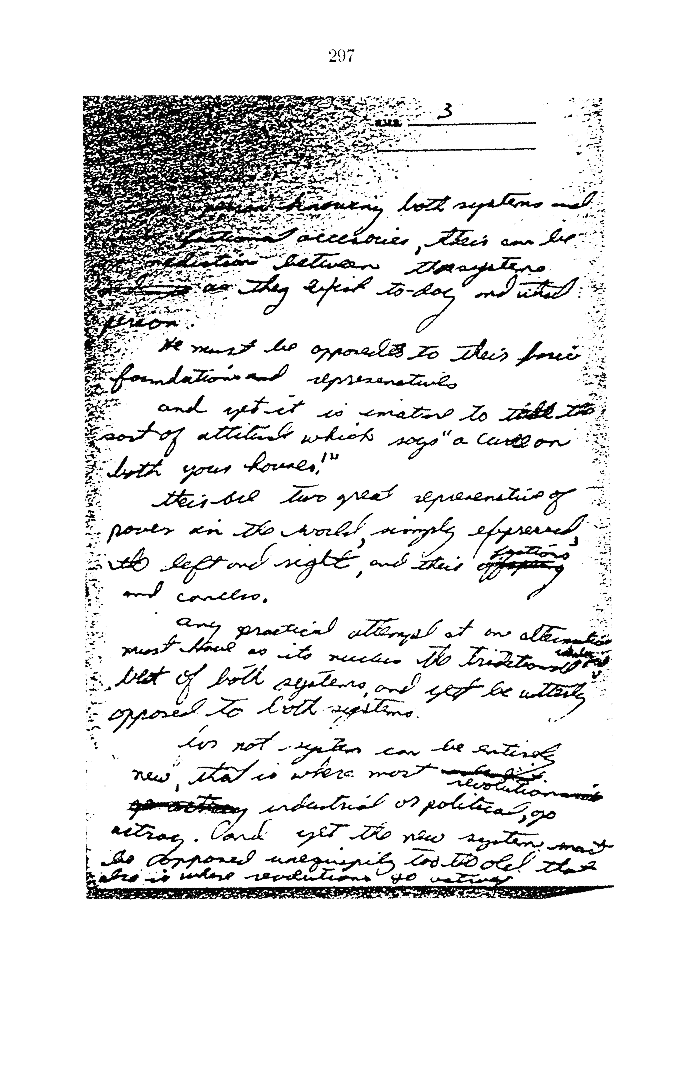 297
3
person knowing both systems and
functional accesories, their can be
mediation between the systems
as they exist to-day and that
person.
He must be opposed to their basic
foundations and represenatives
and yet it is imature to take the
sort of attitude which says "a curse on
both your houses!"
their are two great represenative of
power in the world, simply expressed
the left and right, and their factions
and concless.
any practical attempt at one alternative
must have as its nucleus the traditional
best of both systems, and yet be utterly
opposed to both systems.
for not system can be entirely
new, that is where most revolutions
industrial or political, go
astray. And yet the new system must
be opposed unequipily to the old that
also is where revolutions go astray